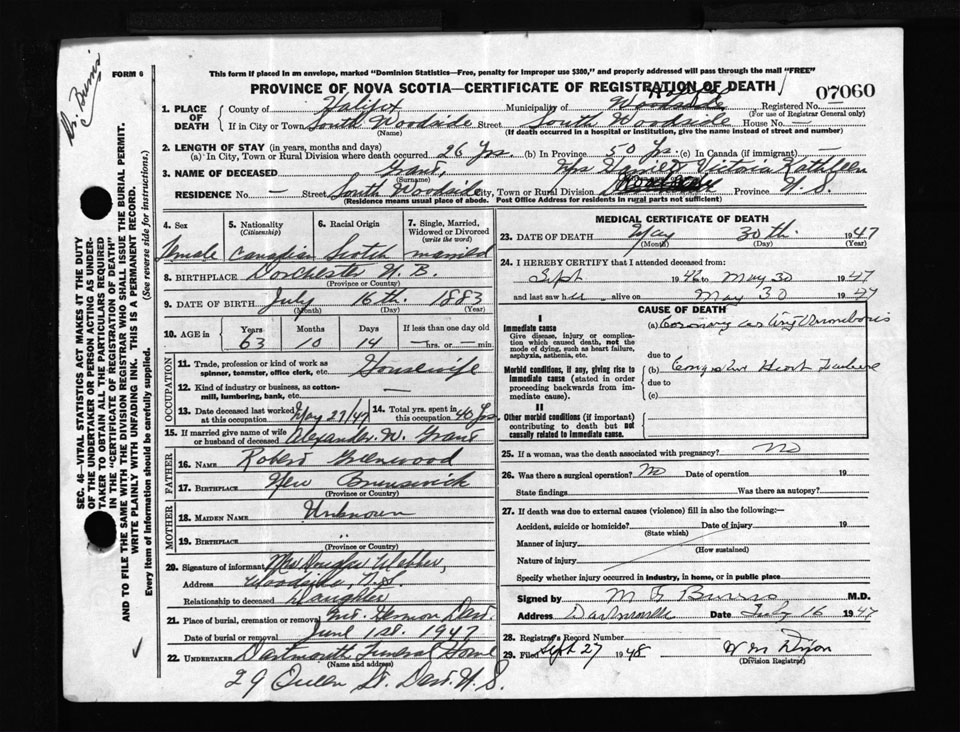 Dr. Burns
FORM 6
This form if placed in an envelope, marked "Dominion Statistics—Free, penalty for improper use $300," and properly addressed will pass through the mail "FREE"
PROVINCE OF NOVA SCOTIA—CERTIFICATE OF REGISTRATION OF DEATH
07060
1. PLACE OF DEATH County of Halifax Municipality of Woodside Registered No.
(For use of Registrar General only)
If in City or Town South Woodside Street South Woodside House No. —
(Name) (If death occurred in a hospital or institution, give the name instead of street and number)
2. LENGTH OF STAY (in years, months and days)
(a) In City, Town or Rural Division where death occurred 26 Yrs. (b) In Province 50 Yrs. (c) In Canada (if immigrant) —
3. NAME OF DECEASED Grant, Mrs Victoria Kathleen
(Surname)
RESIDENCE No. — Street South Woodside City, Town or Rural Division Province N. S.
(Residence means usual place of abode. Post Office Address for residents in rural parts not sufficient)
4. Sex Female
5. Nationality (Citizenship) Canadian
6. Racial Origin Scotch
7. Single, Married, Widowed or Divorced (write the word) married
8. BIRTHPLACE Dorchester N. B.
(Province or Country)
9. DATE OF BIRTH July 16th 1883
(Month) (Day) (Year)
10. AGE in Years Months Days If less than one day
63 10 14 —hrs. or — min.
OCCUPATION
11. Trade, profession or kind of work as spinner, teamster, office clerk, etc. Housewife
12. Kind of industry or business, as cotton-mill, lumbering, bank, etc. —
13. Date deceased last worked at this occupation May 27/47
14. Total yrs. spent in this occupation 40 Yrs.
15. If married give name of wife or husband of deceased Alexander W. Grant
FATHER
16. NAME Robert Greenwood
17. BIRTHPLACE New Brunswick
(Province or Country)
MOTHER
18. MAIDEN NAME Unknown
19. BIRTHPLACE "
(Province or Country)
20. Signature of informant Mrs Douglas Webber,
Address Woodside, N.S.
Relationship to deceased Daughter
21. Place of burial, cremation or removal Mt. Hermon Dart.
Date of burial or removal June 1st. 1947
22. UNDERTAKER Dartmouth Funeral Home
(Name and address)
29 Queen St. Dart. N. S.
MEDICAL CERTIFICATE OF DEATH
23. DATE OF DEATH May 30th. 1947
(Month) (Day) (Year)
24. I HEREBY CERTIFY that I attended deceased from:
Sept 1946 to May 30 1947
and last saw her alive on May 30 1947
CAUSE OF DEATH
I
Immediate cause
Give disease, injury or complication which caused death, not the mode of dying, such as heart failure, asphyxia, asthenia, etc.
(a) Coronary
due to
Morbid conditions, if any, giving rise to immediate cause (stated in order proceeding backwards from immediate cause).
(b) Congestive Heart Failure
due to
(c)
II
Other morbid conditions (if important) contributing to death but not causally related to immediate cause.
25. If a woman, was the death associated with pregnancy? no
26. Was there a surgical operation? no Date of operation 19
State findings Was there an autopsy?
27. If death was due to external causes (violence) fill in also the following:—
Accident, suicide or homicide? Date of injury 19
(State which)
Manner of injury
(How sustained)
Nature of injury
Specify whether injury occurred in industry, in home, or in public place
Signed by M G Burns M.D.
Address Dartmouth Date July 16 1947
28. Registrar's Record Number
29. Filed Sept 27 1948 W M Dixon
(Division Registrar)
SEC. 46—VITAL STATISTICS ACT MAKES IT THE DUTY
OF THE UNDERTAKER OR PERSON ACTING AS UNDER-
TAKER TO OBTAIN ALL THE PARTICULARS REQUIRED
IN THE "CERTIFICATE OF REGISTRATION OF DEATH"
AND TO FILE THE SAME WITH THE DIVISION REGISTRAR WHO SHALL ISSUE THE BURIAL PERMIT.
WRITE PLAINLY WITH UNFADING INK. THIS IS A PERMANENT RECORD.
Every item of information should be carefully supplied. (See reverse side for instructions.)